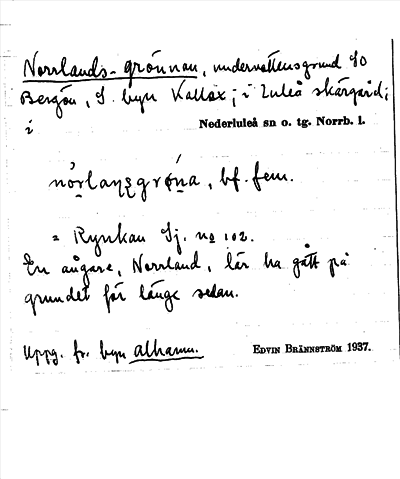 Norrlands-grönnan, undervattensgrund SO
Bergön, S. byn Kallax; i Luleå skärgård;
i
Nederluleå sn o. tg. Norrb. l.
bf. fem.
= Rynkan Sj. no 102.
En ångare, Norrland, lär ha gått på
grundet för länge sedan.
Uppg. fr. byn alhamn.
EDVIN BRÄNNSTRÖM 1937.